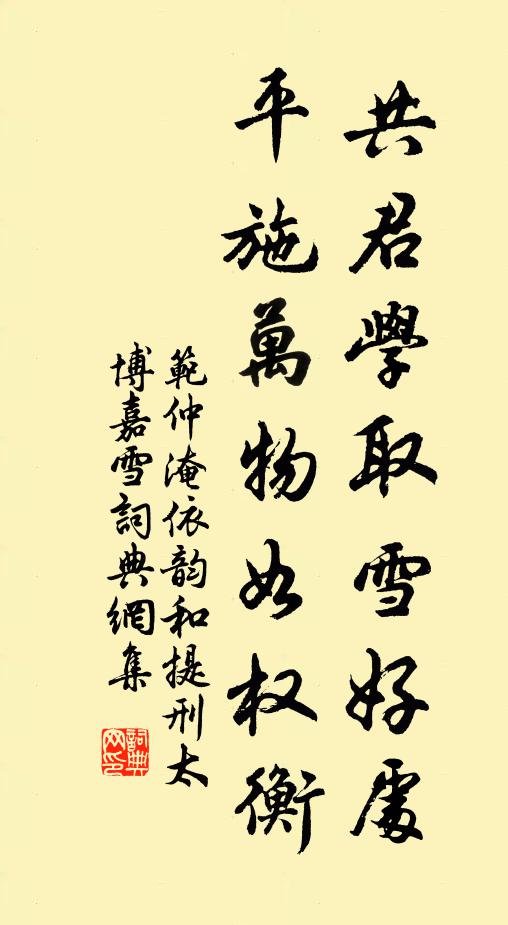 共君學取雪好處
平施萬物如权衡
範仲淹依韵和提刑太
博嘉雪詞典網集
詞典
网印